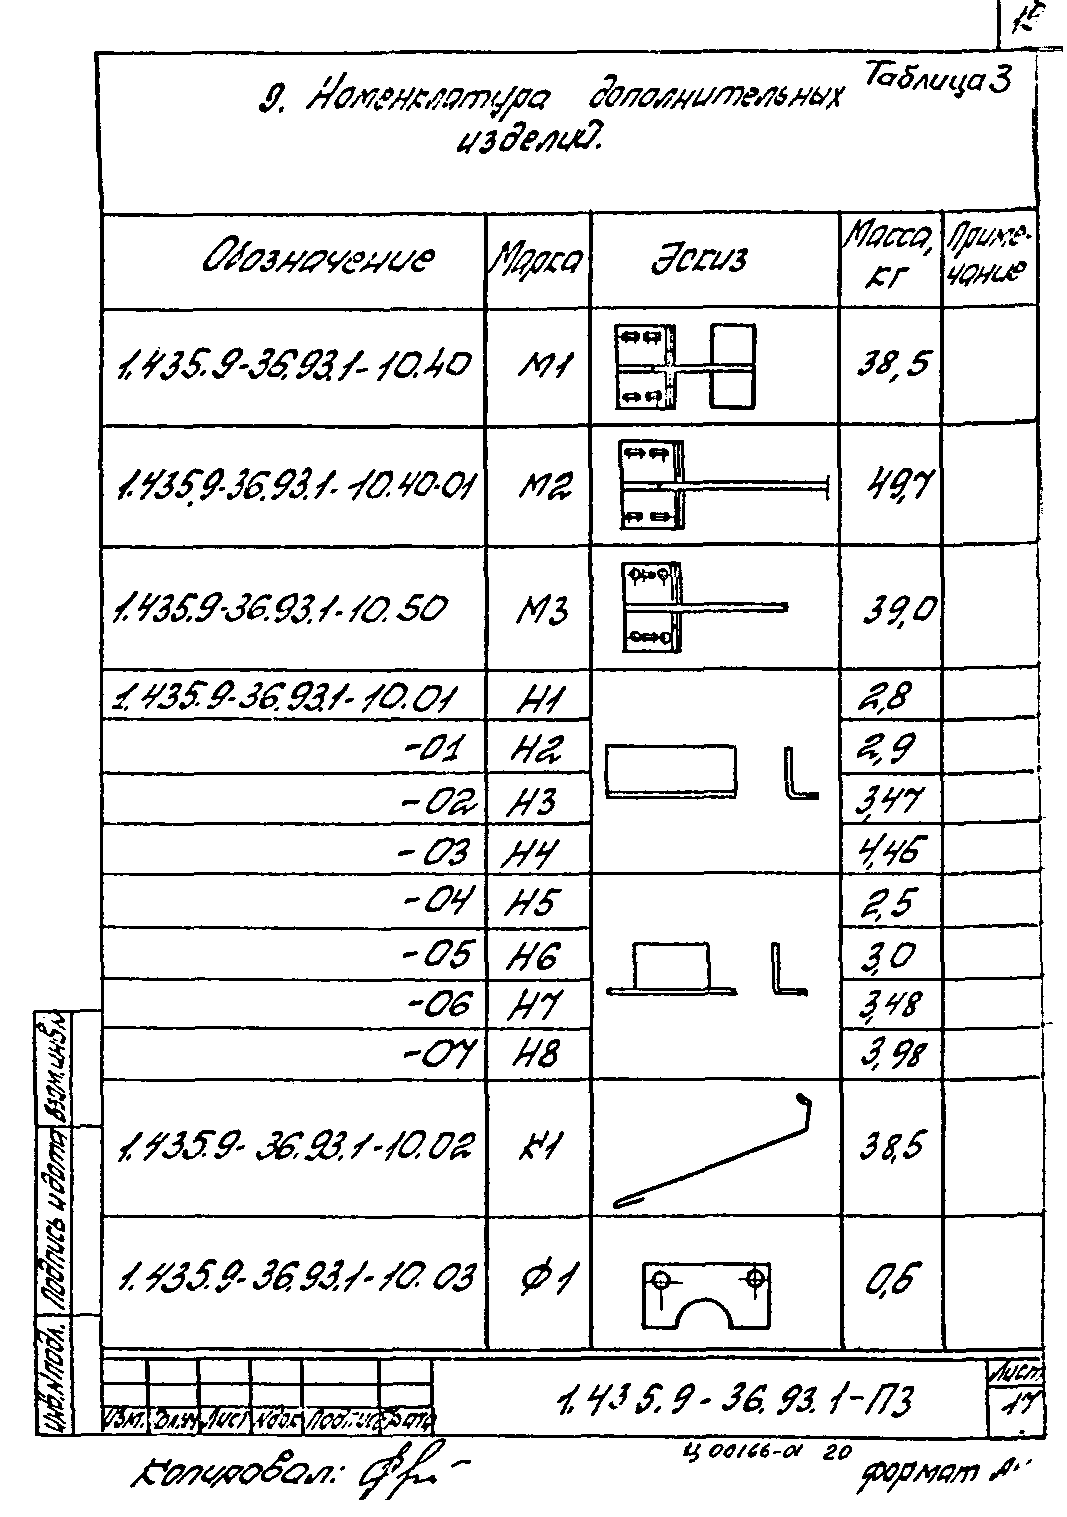 Таблица 3
9. Номенклатура дополнительных
изделий.
Обозначение Марка Эскиз Масса, кг Приме-чание
1.435.9-36.93.1-10.40 М1 38,5
1.435.9-36.93.1-10.40-01 М2 49,7
1.435.9-36.93.1-10.50 М3 39,0
1.435.9-36.93.1-10.01 Н1 2,8
-01 Н2 2,9
-02 Н3 3,47
-03 Н4 4,46
-04 Н5 2,5
-05 Н6 3,0
-06 Н7 3,48
-07 Н8 3,98
1.435.9-36.93.1-10.02 К1 38,5
1.435.9-36.93.1-10.03 Ф1 0,6
Взам.инв.№
Подпись и дата
Инв.№подл.
Изм. Лист №док Подпись Дата
1.435.9-36.93.1-ПЗ
Лист
17
Копировал:
Ц 00166-01 20
Формат